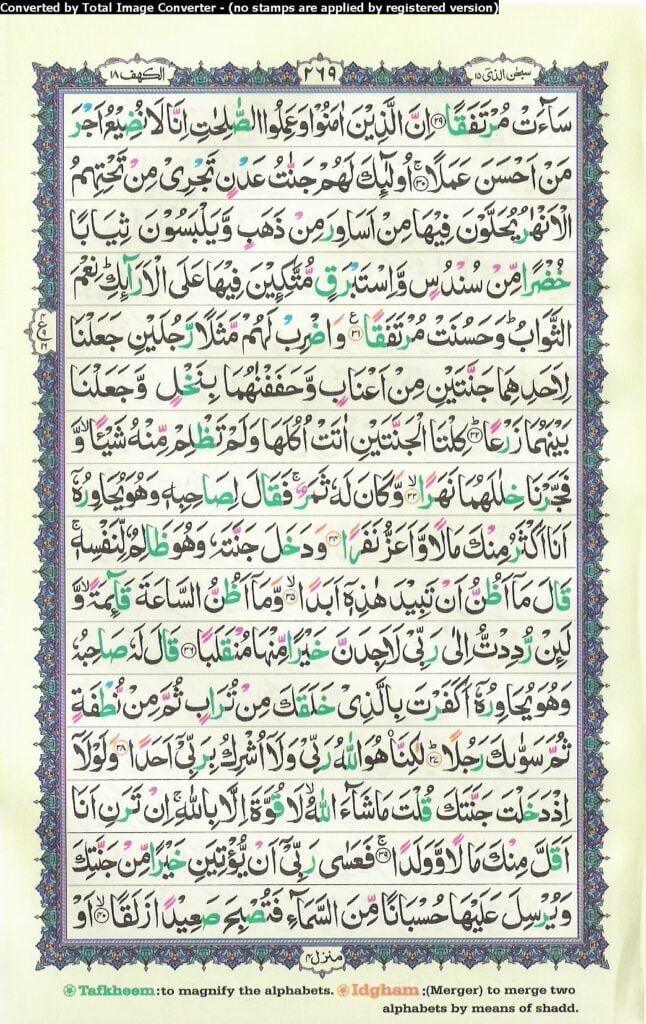 Converted by Total Image Converter - (no stamps are applied by registered version)
سبحٰن الذی ١٥
٢٦٩
الكهف ١٨
سَآءَتْ مُرْتَفَقًا ﴿٢٩﴾ اِنَّ الَّذِيْنَ اٰمَنُوْا وَعَمِلُوا الصّٰلِحٰتِ اِنَّا لَا نُضِيْعُ اَجْرَ
مَنْ اَحْسَنَ عَمَلًا ۚ﴿٣٠﴾ اُولٰٓئِكَ لَهُمْ جَنّٰتُ عَدْنٍ تَجْرِىْ مِنْ تَحْتِهِمُ
الْاَنْهٰرُ يُحَلَّوْنَ فِيْهَا مِنْ اَسَاوِرَ مِنْ ذَهَبٍ وَّيَلْبَسُوْنَ ثِيَابًا
خُضْرًا مِّنْ سُنْدُسٍ وَّاِسْتَبْرَقٍ مُّتَّكِـِٕيْنَ فِيْهَا عَلَى الْاَرَآئِكِ ؕ نِعْمَ
الثَّوَابُ ؕ وَحَسُنَتْ مُرْتَفَقًا ﴿٣١﴾ وَاضْرِبْ لَهُمْ مَّثَلًا رَّجُلَيْنِ جَعَلْنَا
لِاَحَدِهِمَا جَنَّتَيْنِ مِنْ اَعْنَابٍ وَّحَفَفْنٰهُمَا بِنَخْلٍ وَّجَعَلْنَا
بَيْنَهُمَا زَرْعًا ؕ﴿٣٢﴾ كِلْتَا الْجَنَّتَيْنِ اٰتَتْ اُكُلَهَا وَلَمْ تَظْلِمْ مِّنْهُ شَيْـًٔا ۙ وَّ
فَجَّرْنَا خِلٰلَهُمَا نَهَرًا ۙ﴿٣٣﴾ وَّكَانَ لَهٗ ثَمَرٌ ۚ فَقَالَ لِصَاحِبِهٖ وَهُوَ يُحَاوِرُهٗۤ
اَنَا اَكْثَرُ مِنْكَ مَالًا وَّاَعَزُّ نَفَرًا ﴿٣٤﴾ وَدَخَلَ جَنَّتَهٗ وَهُوَ ظَالِمٌ لِّنَفْسِهٖ ۚ
قَالَ مَاۤ اَظُنُّ اَنْ تَبِيْدَ هٰذِهٖۤ اَبَدًا ۙ﴿٣٥﴾ وَّمَاۤ اَظُنُّ السَّاعَةَ قَآئِمَةً ۙ وَّ
لَئِنْ رُّدِدْتُّ اِلٰى رَبِّىْ لَاَجِدَنَّ خَيْرًا مِّنْهَا مُنْقَلَبًا ﴿٣٦﴾ قَالَ لَهٗ صَاحِبُهٗ
وَهُوَ يُحَاوِرُهٗۤ اَكَفَرْتَ بِالَّذِىْ خَلَقَكَ مِنْ تُرَابٍ ثُمَّ مِنْ نُّطْفَةٍ
ثُمَّ سَوّٰىكَ رَجُلًا ؕ﴿٣٧﴾ لٰكِنَّا۠ هُوَ اللّٰهُ رَبِّىْ وَلَاۤ اُشْرِكُ بِرَبِّىْۤ اَحَدًا ﴿٣٨﴾ وَلَوْلَاۤ
اِذْ دَخَلْتَ جَنَّتَكَ قُلْتَ مَا شَآءَ اللّٰهُ ۙ لَا قُوَّةَ اِلَّا بِاللّٰهِ ۚ اِنْ تَرَنِ اَنَا
اَقَلَّ مِنْكَ مَالًا وَّوَلَدًا ۚ﴿٣٩﴾ فَعَسٰى رَبِّىْۤ اَنْ يُّؤْتِيَنِ خَيْرًا مِّنْ جَنَّتِكَ
وَيُرْسِلَ عَلَيْهَا حُسْبَانًا مِّنَ السَّمَآءِ فَتُصْبِحَ صَعِيْدًا زَلَقًا ۙ﴿٤٠﴾ اَوْ
منزل ٤
Tafkheem :to magnify the alphabets. Idgham :(Merger) to merge two
alphabets by means of shadd.